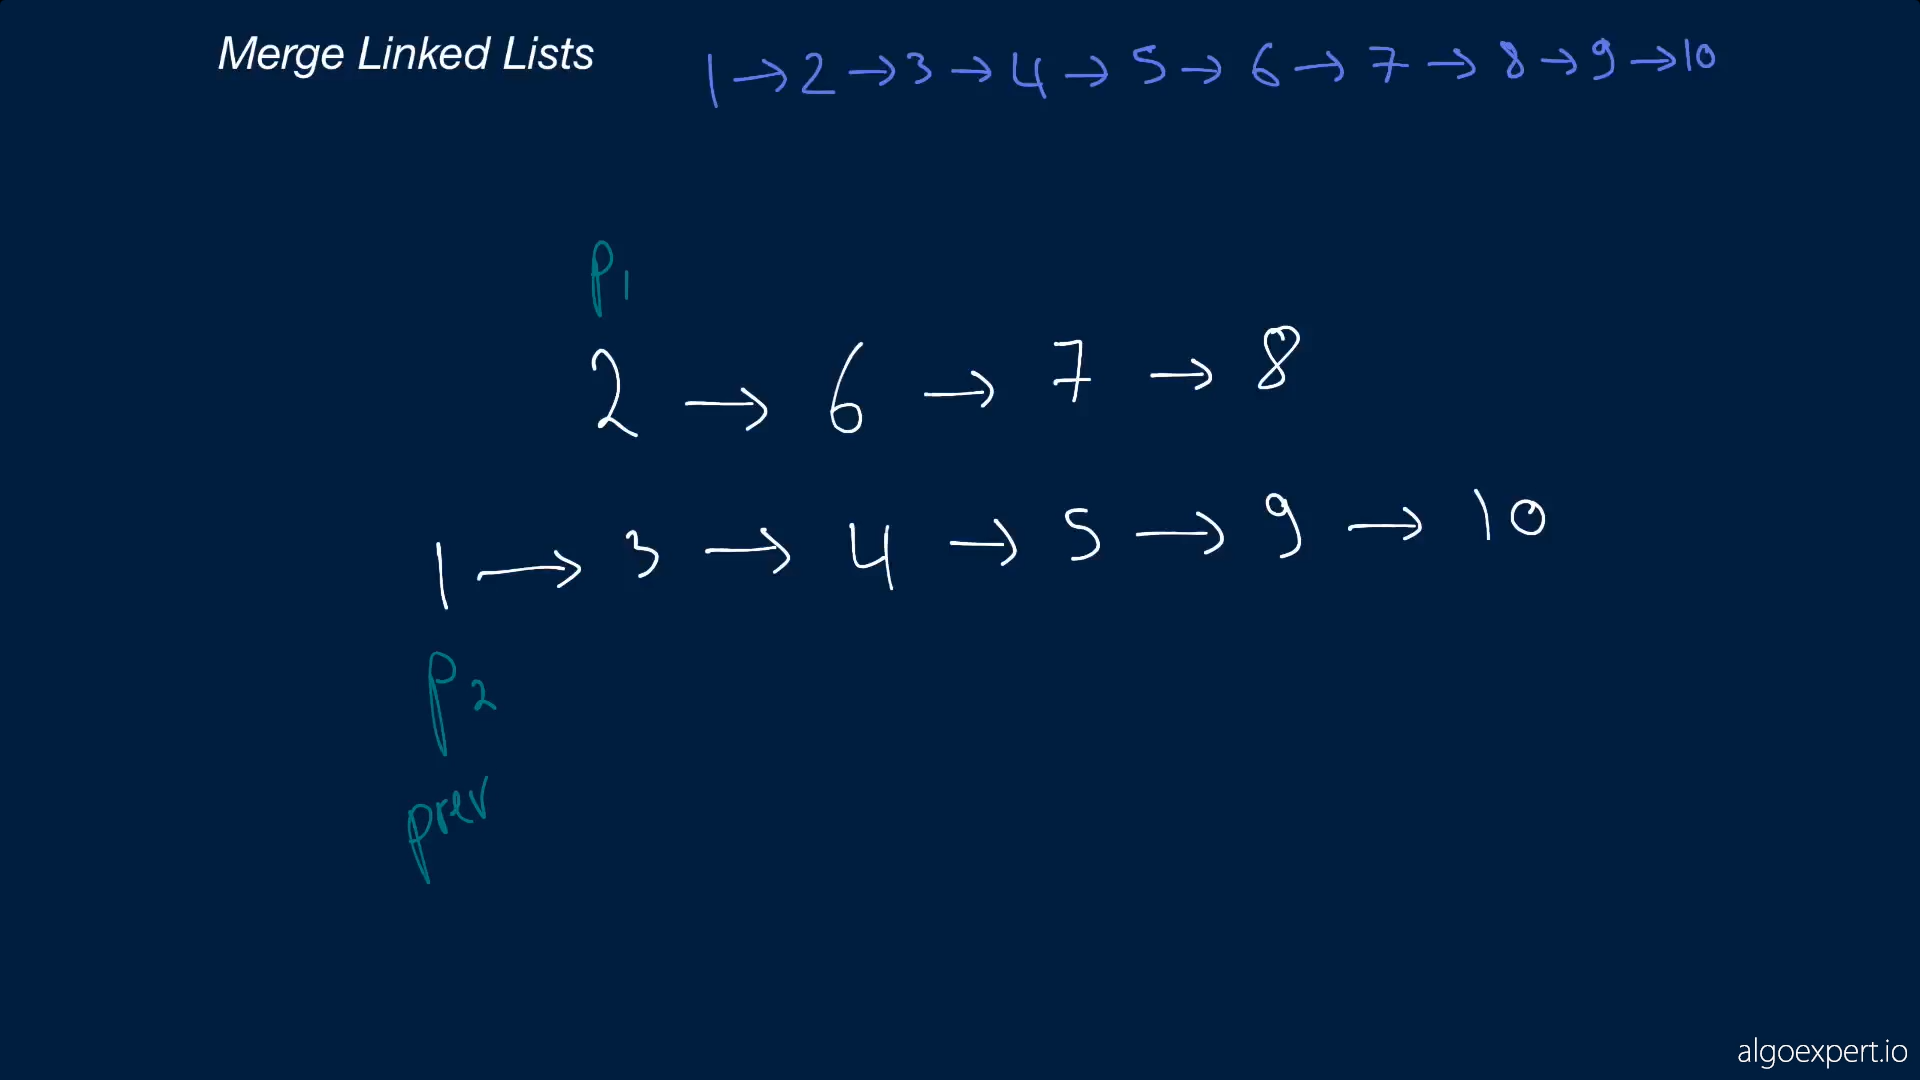 Merge Linked Lists
1 → 2 → 3 → 4 → 5 → 6 → 7 → 8 → 9 → 10
P1
2 → 6 → 7 → 8
1 → 3 → 4 → 5 → 9 → 10
P2
prev
algoexpert.io